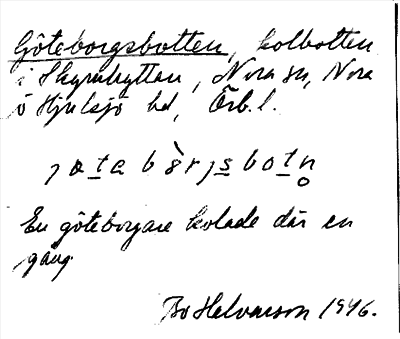 Göteborgsbotten, kolbotten
i Skyrhyttan, Nora sn, Nora
o Hjulsjö hd, Örb. l.
En göteborgare kolade där en
gång.
Bo Halvarson 1946.